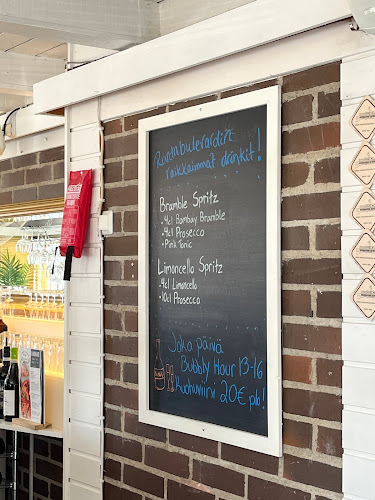 Rantabulevardin
raikkaimmat drinkit!
Bramble Spritz
• 4cl Bombay Bramble
• 4cl Prosecco
• Pink Tonic
Limoncello Spritz
• 4cl Limoncello
• 10cl Prosecco
Joka päivä
Bubbly Hour 13-16
Kuohuviini 20€ plo!